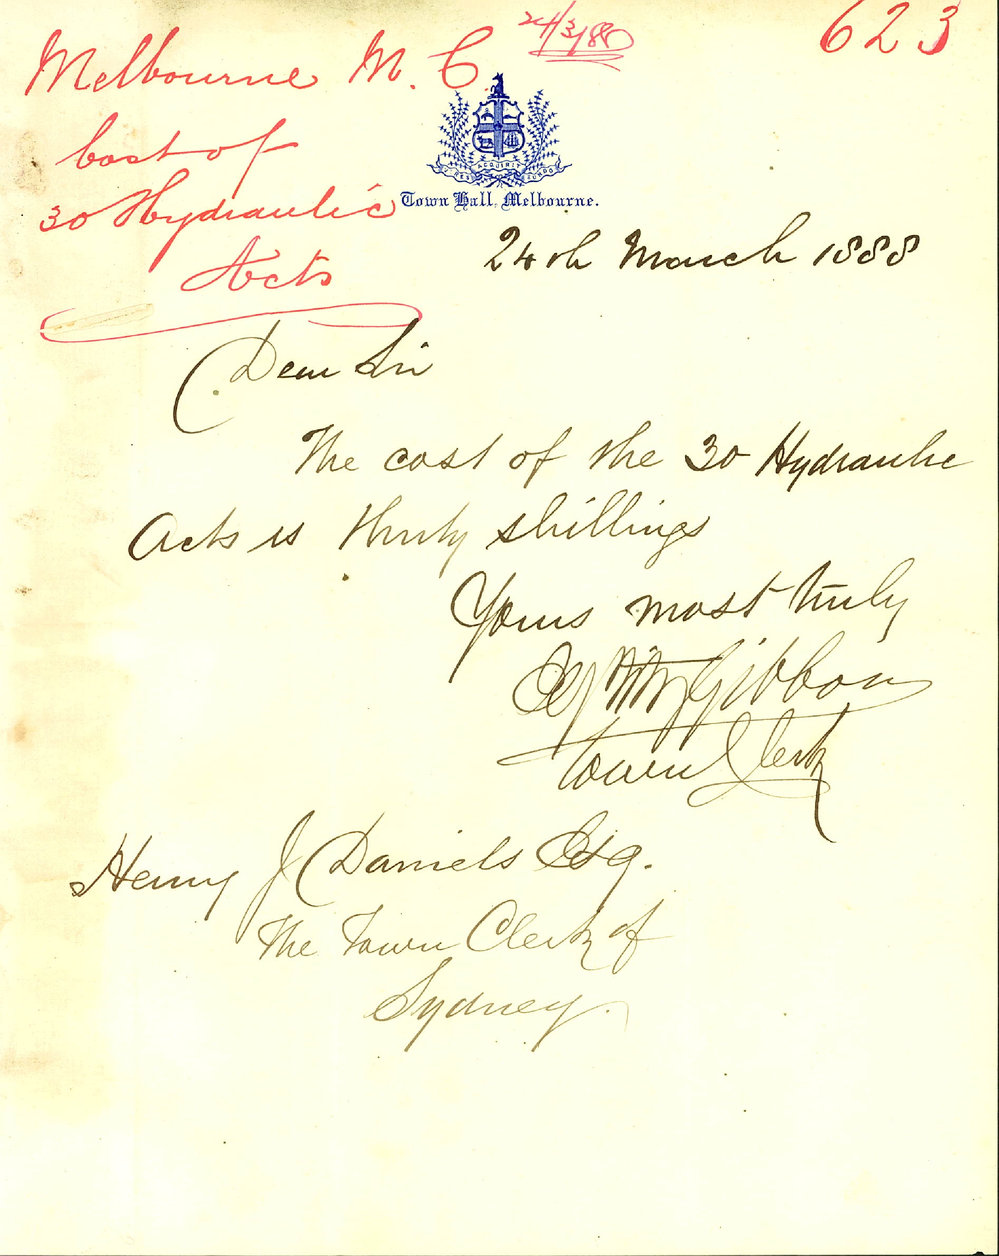 24/3/88
623
Melbourne M. C.
Cost of
30 Hydraulic
Acts
ACQUIRIT
Town Hall, Melbourne.
24th March 1888
Dear Sir
The cost of the 30 Hydraulic
Acts is thirty shillings
Yours most truly
FitzGibbon
Town Clerk
Henry J Daniels Esq.
The Town Clerk of
Sydney.